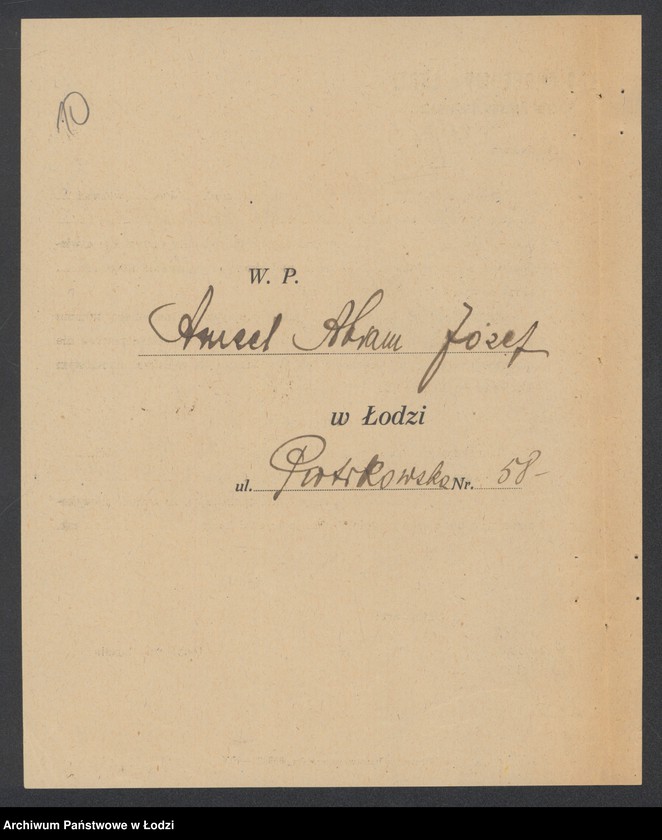 10
W. P.
Amsel Abram Józef
w Łodzi
ul. Piotrkowska Nr. 58-
Archiwum Państwowe w Łodzi